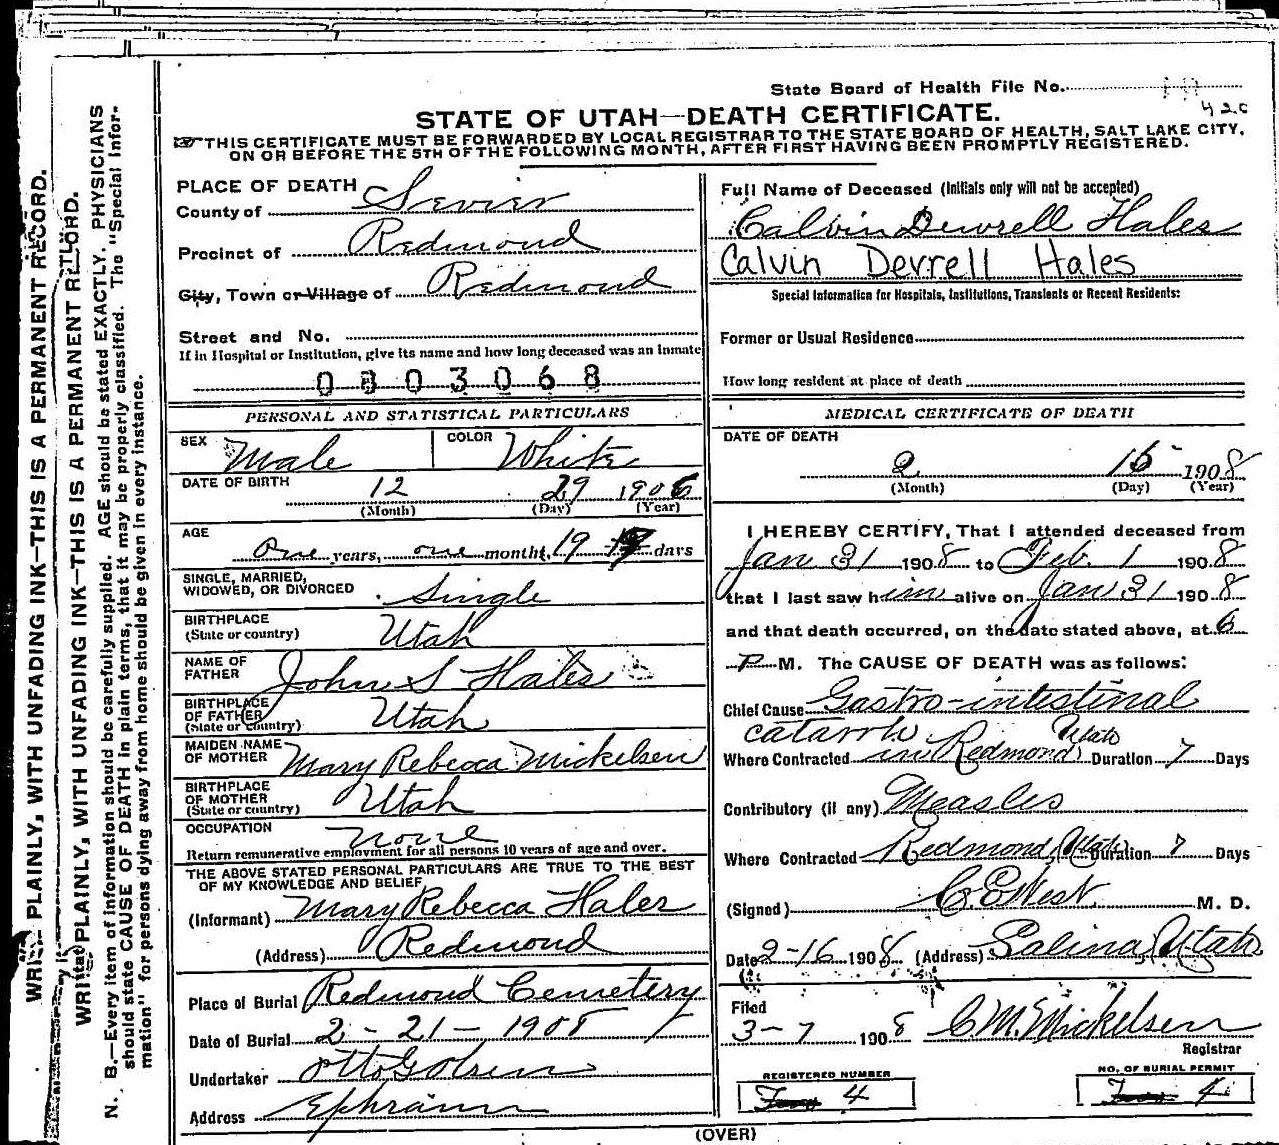 State Board of Health File No.
420
STATE OF UTAH—DEATH CERTIFICATE.
THIS CERTIFICATE MUST BE FORWARDED BY LOCAL REGISTRAR TO THE STATE BOARD OF HEALTH, SALT LAKE CITY,
ON OR BEFORE THE 5TH OF THE FOLLOWING MONTH, AFTER FIRST HAVING BEEN PROMPTLY REGISTERED.
PLACE OF DEATH
County of Sevier
Precinct of Redmond
City, Town or Village of Redmond
Street and No.
If in Hospital or Institution, give its name and how long deceased was an inmate
0803068
PERSONAL AND STATISTICAL PARTICULARS
SEX Male COLOR White
DATE OF BIRTH 12 29 1906
(Month) (Day) (Year)
AGE one years, one months, 19 days
SINGLE, MARRIED,
WIDOWED, OR DIVORCED Single
BIRTHPLACE
(State or country) Utah
NAME OF
FATHER John S Hales
BIRTHPLACE
OF FATHER
(State or Country) Utah
MAIDEN NAME
OF MOTHER Mary Rebecca Mickelsen
BIRTHPLACE
OF MOTHER
(State or country) Utah
OCCUPATION none
Return remunerative employment for all persons 10 years of age and over.
THE ABOVE STATED PERSONAL PARTICULARS ARE TRUE TO THE BEST
OF MY KNOWLEDGE AND BELIEF
(Informant) Mary Rebecca Hales
(Address) Redmond
Place of Burial Redmond Cemetery
Date of Burial 2-21-1908
Undertaker Otto G Olsen
Address Ephraim
Full Name of Deceased (Initials only will not be accepted)
Calvin Dewrell Hales
Calvin Devrell Hales
Special Information for Hospitals, Institutions, Transients or Recent Residents:
Former or Usual Residence
How long resident at place of death
MEDICAL CERTIFICATE OF DEATH
DATE OF DEATH
2 15 1908
(Month) (Day) (Year)
I HEREBY CERTIFY, That I attended deceased from
Jan 31 1908 to Feb. 1 1908
that I last saw him alive on Jan 31 1908
and that death occurred, on the date stated above, at 6
P M. The CAUSE OF DEATH was as follows:
Chief Cause Gastro-intestinal
catarrh
Where Contracted in Redmond Utah Duration 7 Days
Contributory (if any) Measles
Where Contracted Redmond, Utah Duration 7 Days
(Signed) C. E. West M. D.
Date 2-16 1908 (Address) Salina, Utah
Filed
3-7 1908 C. M. Mickelsen
Registrar
REGISTERED NUMBER
Four 4
NO. OF BURIAL PERMIT
Four 4
(OVER)
WRITE PLAINLY, WITH UNFADING INK—THIS IS A PERMANENT RECORD.
WRITE PLAINLY, WITH UNFADING INK—THIS IS A PERMANENT RECORD.
N. B.—Every item of information should be carefully supplied. AGE should be stated EXACTLY. PHYSICIANS
should state CAUSE OF DEATH in plain terms, that it may be properly classified. The "Special Infor-
mation" for persons dying away from home should be given in every instance.